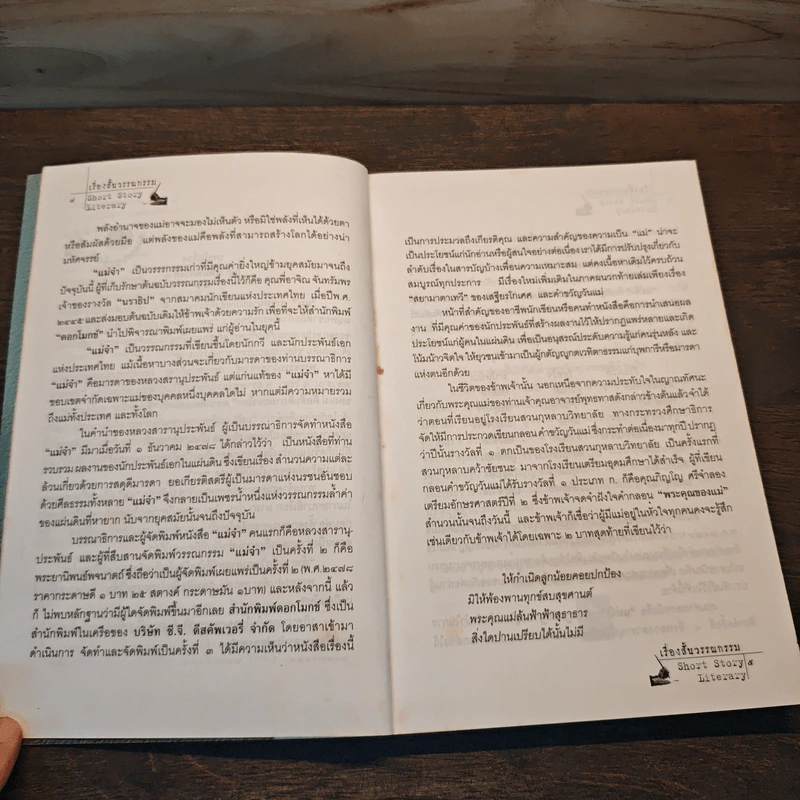 เรื่องสั้นวรรณกรรม
๔ Short Story
Literary
พลังอำนาจของแม่อาจจะมองไม่เห็นตัว หรือมิใช่พลังที่เห็นได้ด้วยตา
หรือสัมผัสด้วยมือ แต่พลังของแม่คือพลังที่สามารถสร้างโลกได้อย่างน่า
มหัศจรรย์
"แม่จ๋า" เป็นวรรณกรรมเก่าที่มีคุณค่ายิ่งใหญ่ข้ามยุคสมัยมาจนถึง
ปัจจุบันนี้ ผู้ที่เก็บรักษาต้นฉบับวรรณกรรมเรื่องนี้ไว้ก็คือ คุณพี่อาจิณ จันทรัมพร
เจ้าของรางวัล "นราธิป" จากสมาคมนักเขียนแห่งประเทศไทย เมื่อปี พ.ศ.
๒๕๔๕ และส่งมอบต้นฉบับเดิมให้ข้าพเจ้าด้วยความรัก เพื่อที่จะให้สำนักพิมพ์
"ดอกโมกข์" นำไปพิจารณาพิมพ์เผยแพร่ แก่ผู้อ่านในยุคนี้
"แม่จ๋า" เป็นวรรณกรรมที่เขียนขึ้นโดยนักกวี และนักประพันธ์เอก
แห่งประเทศไทย แม้เนื้อหาบางส่วนจะเกี่ยวกับมารดาของท่านบรรณาธิการ
"แม่จ๋า" คือมารดาของหลวงสารานุประพันธ์ แต่แก่นแท้ของ "แม่จ๋า" หาได้มี
ขอบเขตจำกัดเฉพาะแม่ของบุคคลหนึ่งบุคคลใดไม่ หากแต่มีความหมายรวม
ถึงแม่ทั้งประเทศ และทั้งโลก
ในคำนำของหลวงสารานุประพันธ์ ผู้เป็นบรรณาธิการจัดทำหนังสือ
"แม่จ๋า" มีมาเมื่อวันที่ ๑ ธันวาคม ๒๔๗๘ ได้กล่าวไว้ว่า เป็นหนังสือที่ท่าน
รวบรวม ผลงานของนักประพันธ์เอกในแผ่นดิน ซึ่งเขียนเรื่อง สำนวนความแต่ละ
ล้วนเกี่ยวด้วยการสดุดีมารดา ยอเกียรติสตรีผู้เป็นมารดาแห่งนรชนอันชอบ
ด้วยศีลธรรมทั้งหลาย "แม่จ๋า" จึงกลายเป็นเพชรน้ำหนึ่งแห่งวรรณกรรมล้ำค่า
ของแผ่นดินที่หายาก นับจากยุคสมัยนั้นจนถึงปัจจุบัน
บรรณาธิการและผู้จัดพิมพ์หนังสือ "แม่จ๋า" คนแรกก็คือหลวงสารานุ-
ประพันธ์ และผู้ที่สืบสานจัดพิมพ์วรรณกรรม "แม่จ๋า" เป็นครั้งที่ ๒ ก็คือ
พระยานิพนธ์พจนาตถ์ ซึ่งถือว่าเป็นผู้จัดพิมพ์เผยแพร่เป็นครั้งที่ ๒ (พ.ศ.๒๔๗๘
ราคากระดาษดี ๑ บาท ๒๕ สตางค์ กระดาษมัน ๑บาท) และหลังจากนี้ แล้ว
ก็ ไม่พบหลักฐานว่ามีผู้ใดจัดพิมพ์ขึ้นมาอีกเลย สำนักพิมพ์ดอกโมกข์ ซึ่งเป็น
สำนักพิมพ์ในเครือของ บริษัท ซี.จี. ดีสคัพเวอรี่ จำกัด โดยอาสาเข้ามา
ดำเนินการ จัดทำและจัดพิมพ์เป็นครั้งที่ ๓ ได้มีความเห็นว่าหนังสือเรื่องนี้
เป็นการประมวลถึงเกียรติคุณ และความสำคัญของความเป็น "แม่" น่าจะ
เป็นประโยชน์แก่นักอ่านหรือผู้สนใจอย่างต่อเนื่อง เราได้มีการปรับปรุงเกี่ยวกับ
ลำดับเรื่องในสารบัญบ้างเพื่อความเหมาะสม แต่คงเนื้อหาเดิมไว้ครบถ้วน
สมบูรณ์ทุกประการ มีเรื่องใหม่เพิ่มเติมในภาคผนวกท้ายเล่มเพียงเรื่อง
"สยามาตาเทวี" ของเสฐียรโกเศศ และคำขวัญวันแม่
หน้าที่สำคัญของอาชีพนักเขียนหรือคนทำหนังสือคือการนำเสนอผล
งาน ที่มีคุณค่าของนักประพันธ์ที่สร้างผลงานไว้ให้ปรากฏแพร่หลายและเกิด
ประโยชน์แก่ผู้คนในแผ่นดิน เพื่อเป็นอนุสรณ์ประดับความรู้แก่คนรุ่นหลัง และ
โน้มน้าวจิตใจ ให้ยุวชนเข้ามาเป็นผู้กตัญญูกตเวทิตาธรรมแก่บุพการีหรือมารดา
แห่งตนอีกด้วย
ในชีวิตของข้าพเจ้านั้น นอกเหนือจากความประทับใจในญาณทัศนะ
เกี่ยวกับพระคุณแม่ของท่านเจ้าคุณอาจารย์พุทธทาสดังกล่าวข้างต้นแล้วจำได้
ว่าตอนที่เรียนอยู่โรงเรียนสวนกุหลาบวิทยาลัย ทางกระทรวงศึกษาธิการ
จัดให้มีการประกวดเขียนกลอน คำขวัญวันแม่ ซึ่งกระทำต่อเนื่องมาทุกปี ปรากฏ
ว่าปีนั้นรางวัลที่ ๑ ตกเป็นของโรงเรียนสวนกุหลาบวิทยาลัย เป็นครั้งแรกที่
สวนกุหลาบคว้าชัยชนะ มาจากโรงเรียนเตรียมอุดมศึกษาได้สำเร็จ ผู้ที่เขียน
กลอนคำขวัญวันแม่ได้รับรางวัลที่ ๑ ประเภท ก. ก็คือคุณภิญโญ ศรีจำลอง
เตรียมอักษรศาสตร์ปีที่ ๒ ซึ่งข้าพเจ้าจดจำฝังใจคำกลอน "พระคุณของแม่"
สำนวนนั้นจนถึงวันนี้ และข้าพเจ้าก็เชื่อว่าผู้มีแม่อยู่ในหัวใจทุกคนคงจะรู้สึก
เช่นเดียวกับข้าพเจ้าได้โดยเฉพาะ ๒ บาทสุดท้ายที่เขียนไว้ว่า
ให้กำเนิดลูกน้อยคอยปกป้อง
มิให้พ้องพานทุกข์สบสุขศานต์
พระคุณแม่ล้นฟ้าฟ้าสุธาธาร
สิ่งใดปานเปรียบได้นั้นไม่มี
เรื่องสั้นวรรณกรรม
Short Story ๕
Literary